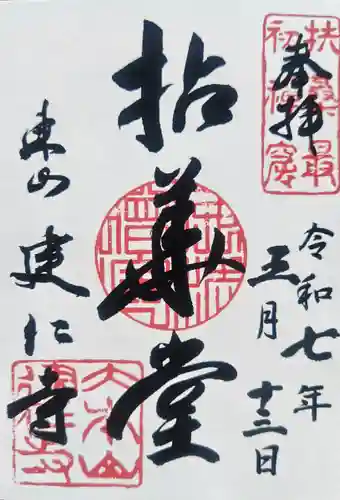 奉拝
扶桑最
初禅窟
令和七年
三月
十三日
拈華堂
東山
建仁寺